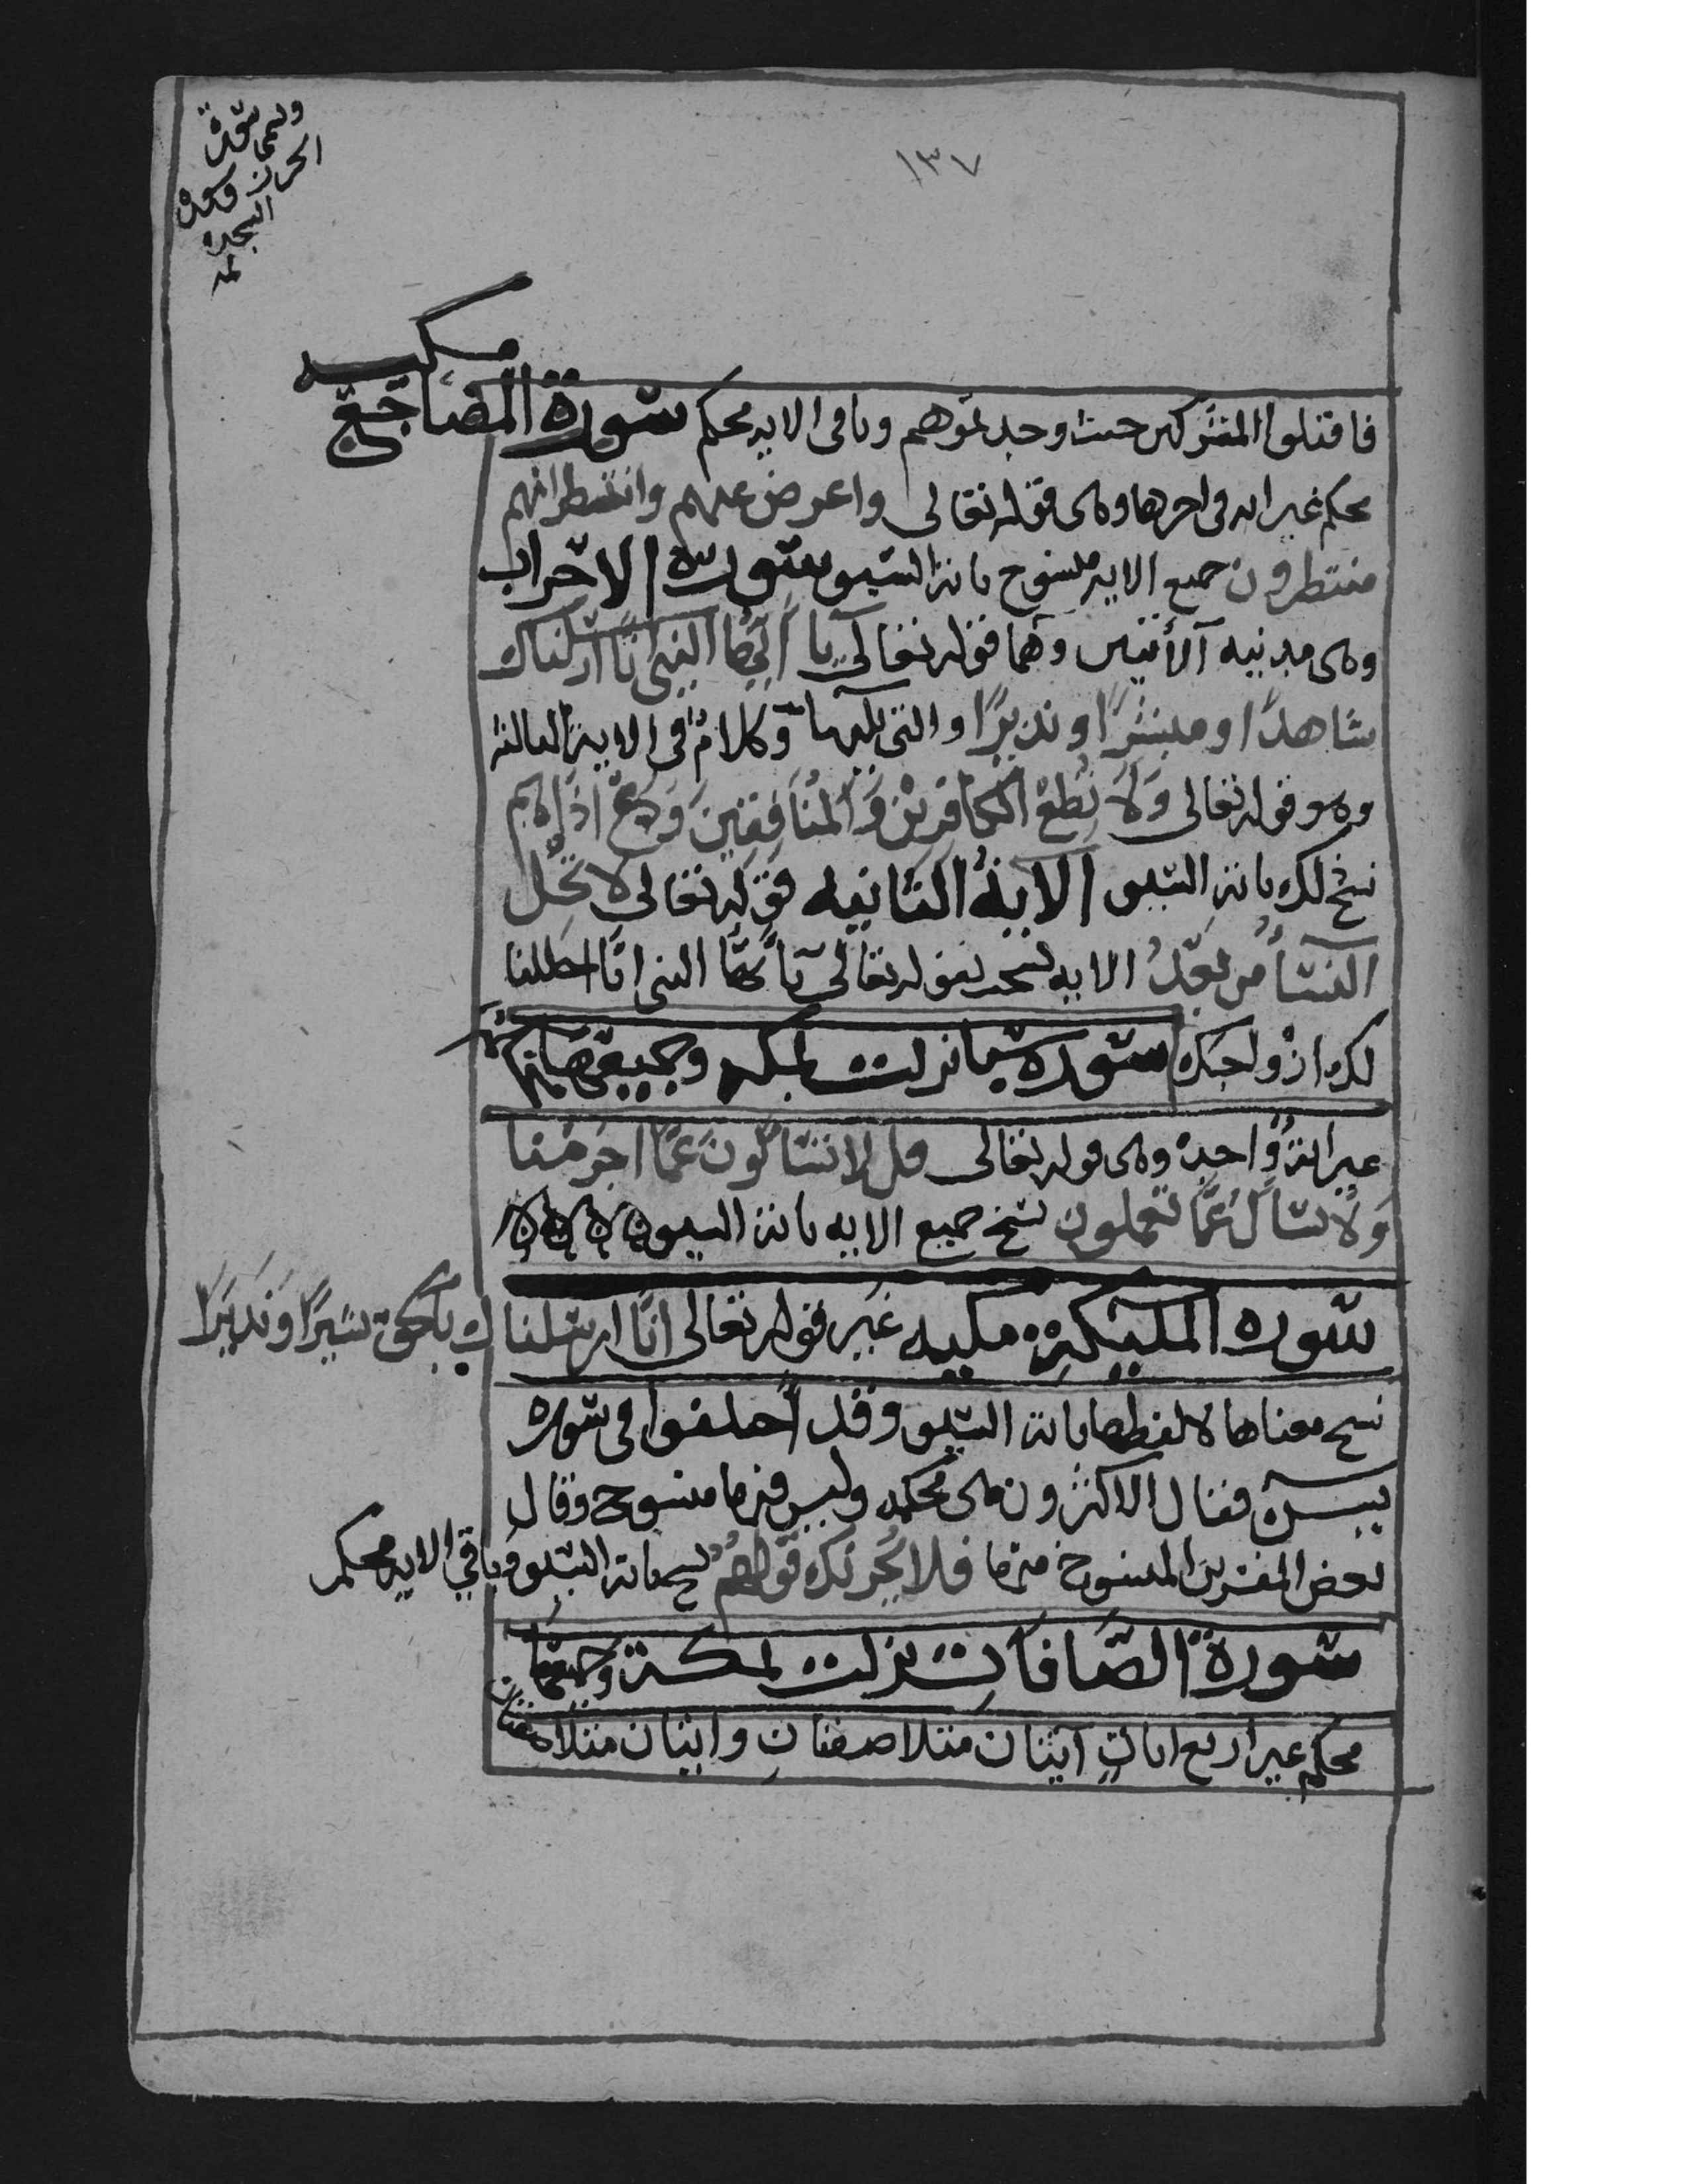 ١٣٧
وتسمى سورة
الجرز وسورة
السجده
فاقتلوا المشركين حيث وجدتموهم وباقى الايه محكم سورة المضاجع مكيه
محكم غير ايه فى اخرها وهى قوله تعالى واعرض عنهم وانتظر انهم
منتظرون جميع الايه منسوخ باية السيف سورة الاحزاب
وهى مدنيه الا أيتين وهما قوله تعالى يا أيها النبى انا ارسلناك
شاهدا ومبشرا ونذيرا والتى تليها وكلام فى الاية الثالثة
وهو قوله تعالى ولا تطع الكافرين والمنافقين ودع اذاهم
نسخ لك باية السيف الاية الثانيه قوله تعالى لا تحل
لك النسأ من بعد الايه نسخت بقوله تعالى يأيها النبى انا احللنا
لك ازواجك سورة سبا نزلت بمكه وجميعها محكم
غير اية واحدة وهى قوله تعالى قل لا تسالون عما اجرمنا
ولا نسأل عما تعملون نسخ جميع الايه باية السيف
سورة المليكة مكيه غير قوله تعالى انا ارسلناك بالحق بشيرا ونذيرا
نسخ معناها لا لفظها باية السيف وقد اختلفوا فى سورة
يس فقال الاكثرون هى محكمه وليس فيها منسوخ وقال
بعض المفسرين المنسوخ منها فلا يحزنك قولهم نسخ باية السيف وباقي الايه محكم
سورة الصافات نزلت بمكة وجميعها
محكم غير اربع ايات آيتان متلاصقتان وايتان متلاصقتان